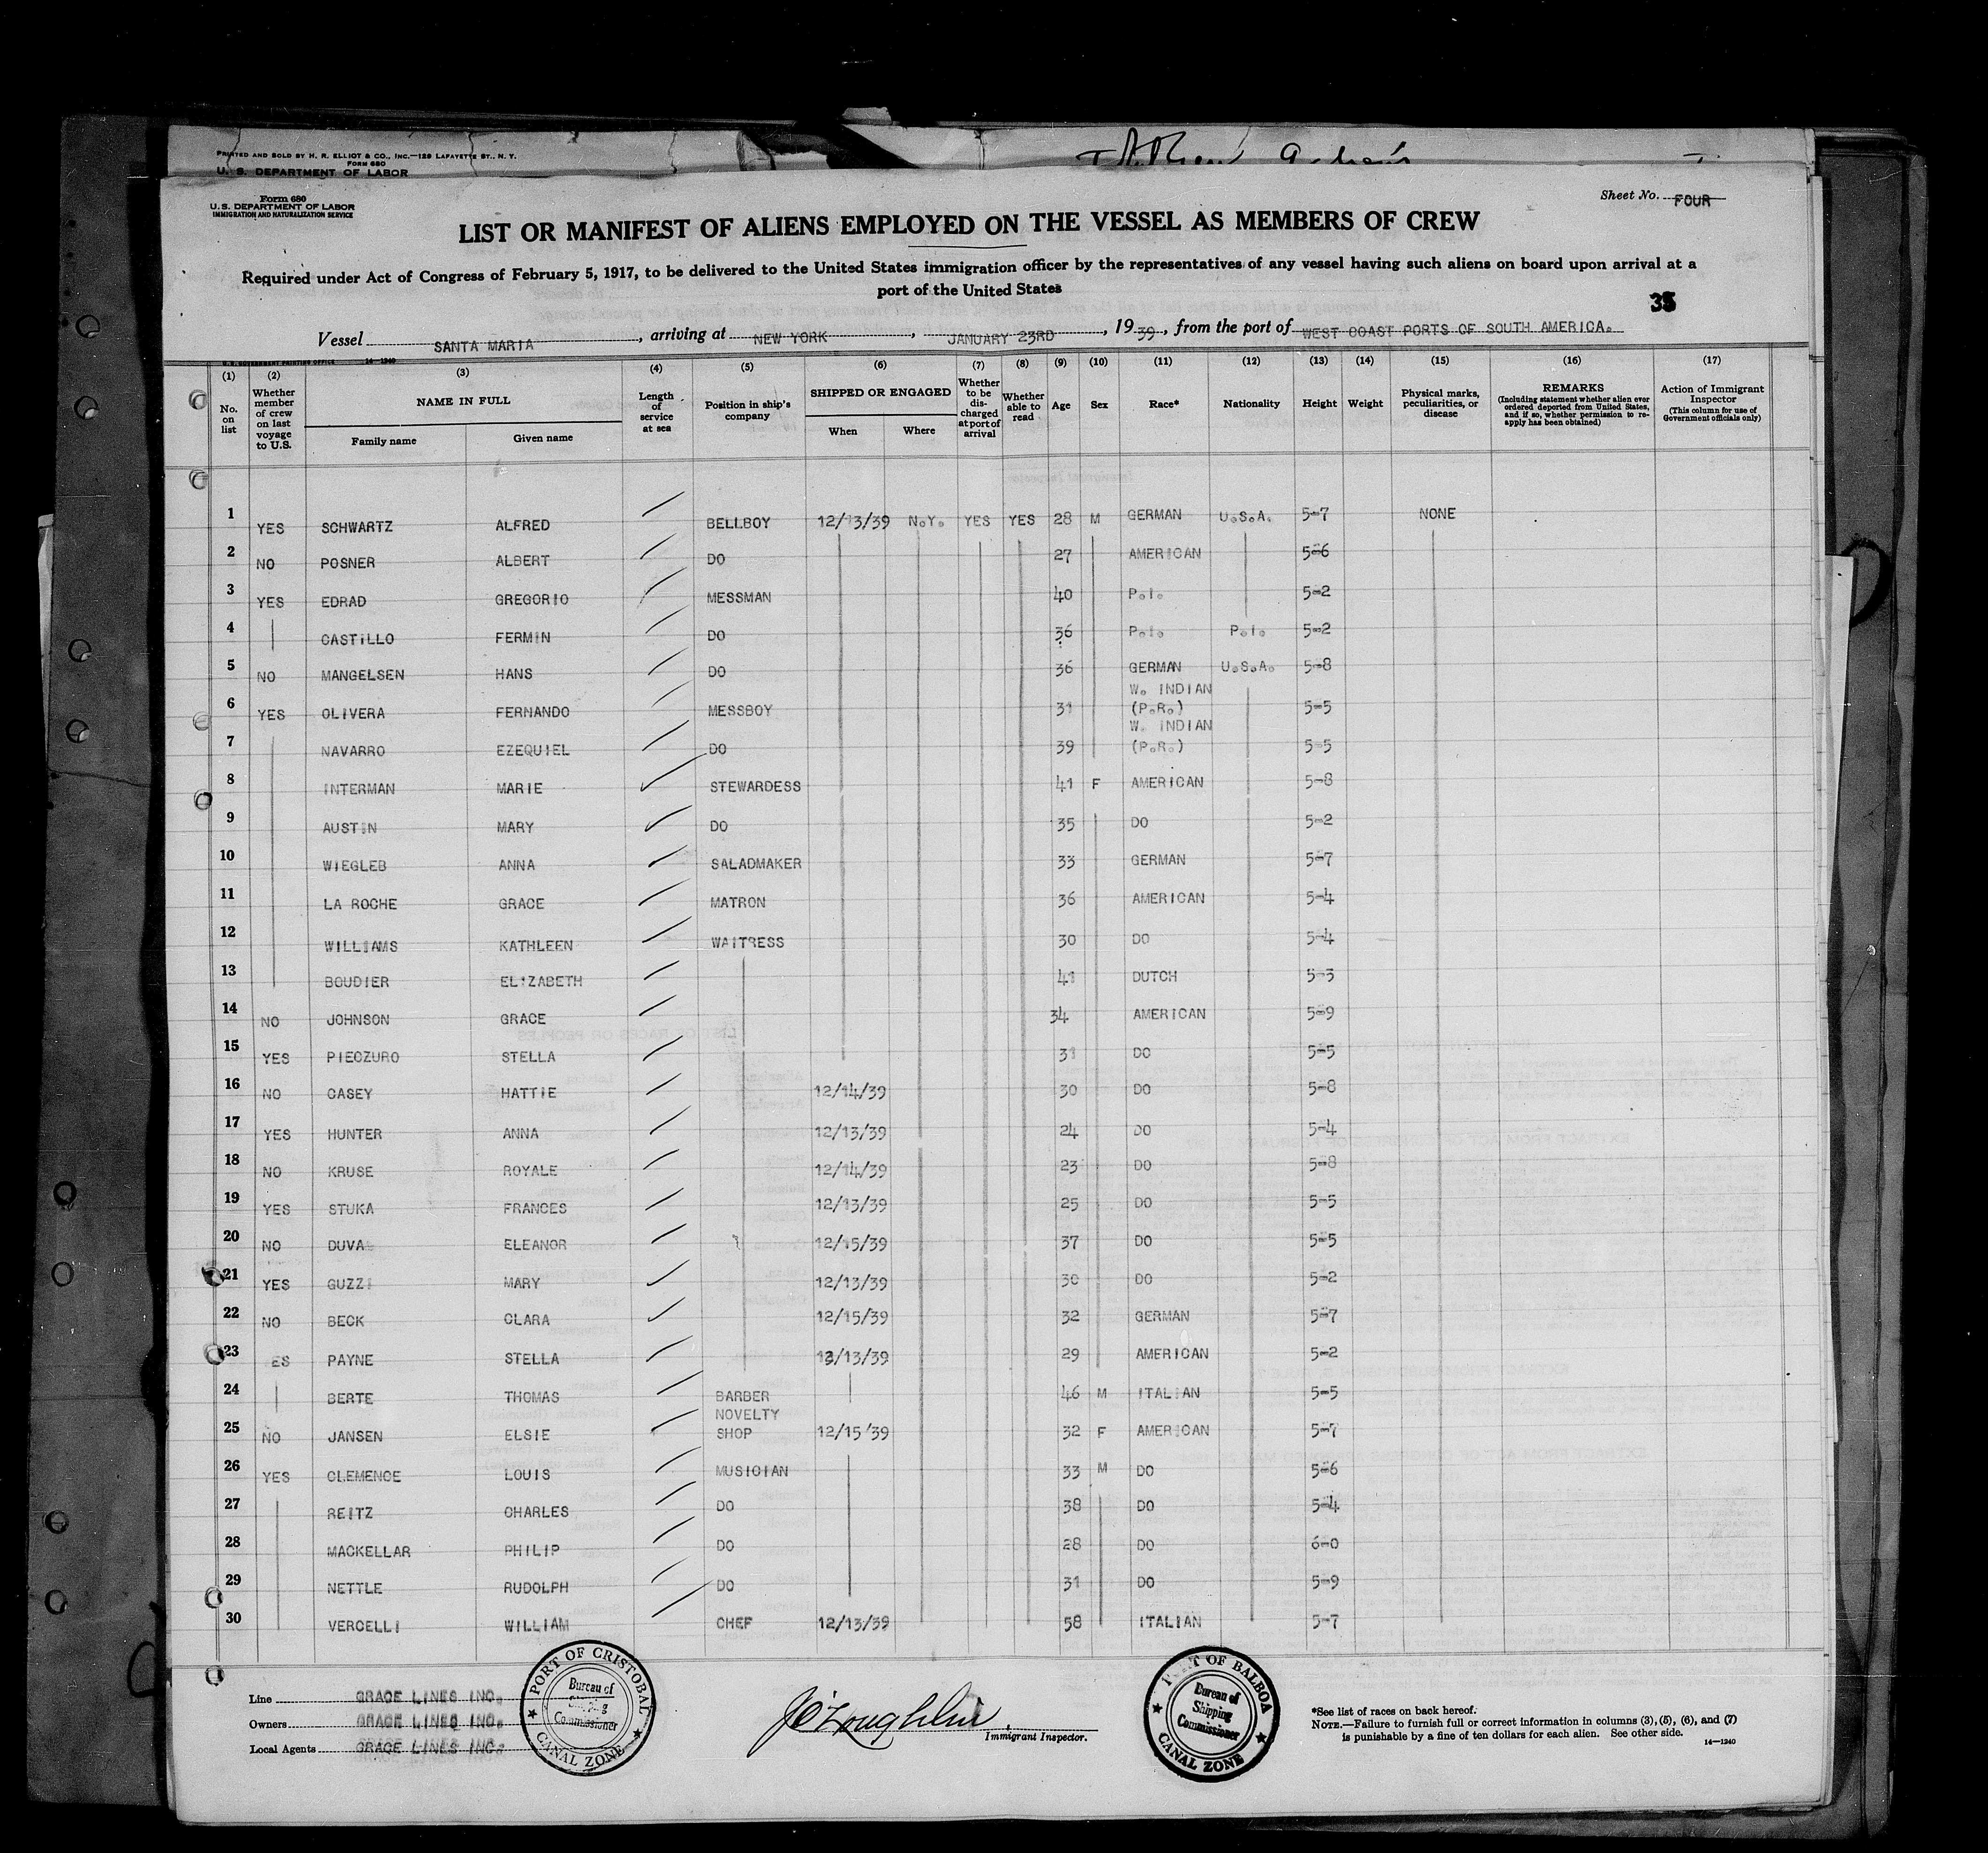 PRINTED AND SOLD BY H. R. ELLIOT & CO., INC.—129 LAFAYETTE ST., N. Y.
FORM 680
U. S. DEPARTMENT OF LABOR
Form 680
U. S. DEPARTMENT OF LABOR
IMMIGRATION AND NATURALIZATION SERVICE
Sheet No. FOUR
LIST OR MANIFEST OF ALIENS EMPLOYED ON THE VESSEL AS MEMBERS OF CREW
Required under Act of Congress of February 5, 1917, to be delivered to the United States immigration officer by the representatives of any vessel having such aliens on board upon arrival at a
port of the United States
Vessel SANTA MARIA, arriving at NEW YORK, JANUARY 23RD, 1939, from the port of WEST COAST PORTS OF SOUTH AMERICA.
U. S. GOVERNMENT PRINTING OFFICE 14—1240
(1) (2) (3) (4) (5) (6) (7) (8) (9) (10) (11) (12) (13) (14) (15) (16) (17)
No. on list
Whether member of crew on last voyage to U.S.
NAME IN FULL
Family name
Given name
Length of service at sea
Position in ship's company
SHIPPED OR ENGAGED
When
Where
Whether to be discharged at port of arrival
Whether able to read
Age
Sex
Race*
Nationality
Height
Weight
Physical marks, peculiarities, or disease
REMARKS
(Including statement whether alien ever ordered deported from United States, and if so, whether permission to reapply has been obtained)
Action of Immigrant Inspector
(This column for use of Government officials only)
1 YES SCHWARTZ ALFRED BELLBOY 12/13/39 N.Y. YES YES 28 M GERMAN U.S.A. 5-7 NONE
2 NO POSNER ALBERT DO 27 AMERICAN 5-6
3 YES EDRAD GREGORIO MESSMAN 40 P.I. 5-2
4 CASTILLO FERMIN DO 36 P.I. P.I. 5-2
5 NO MANGELSEN HANS DO 36 GERMAN U.S.A. 5-8
6 YES OLIVERA FERNANDO MESSBOY 31 W. INDIAN (P.R.) 5-5
7 NAVARRO EZEQUIEL DO 39 W. INDIAN (P.R.) 5-5
8 INTERMAN MARIE STEWARDESS 41 F AMERICAN 5-8
9 AUSTIN MARY DO 35 DO 5-2
10 WIEGLEB ANNA SALADMAKER 33 GERMAN 5-7
11 LA ROCHE GRACE MATRON 36 AMERICAN 5-4
12 WILLIAMS KATHLEEN WAITRESS 30 DO 5-4
13 BOUDIER ELIZABETH 41 DUTCH 5-3
14 NO JOHNSON GRACE 34 AMERICAN 5-9
15 YES PIECZURO STELLA 31 DO 5-5
16 NO CASEY HATTIE 12/14/39 30 DO 5-8
17 YES HUNTER ANNA 12/13/39 24 DO 5-4
18 NO KRUSE ROYALE 12/14/39 23 DO 5-8
19 YES STUKA FRANCES 12/13/39 25 DO 5-5
20 NO DUVAL ELEANOR 12/15/39 37 DO 5-5
21 YES GUZZI MARY 12/13/39 30 DO 5-2
22 NO BECK CLARA 12/15/39 32 GERMAN 5-7
23 ES PAYNE STELLA 12/13/39 29 AMERICAN 5-2
24 BERTE THOMAS BARBER 46 M ITALIAN 5-5
25 NO JANSEN ELSIE NOVELTY SHOP 12/15/39 32 F AMERICAN 5-7
26 YES CLEMENCE LOUIS MUSICIAN 33 M DO 5-6
27 REITZ CHARLES DO 38 DO 5-4
28 MACKELLAR PHILIP DO 28 DO 6-0
29 NETTLE RUDOLPH DO 31 DO 5-9
30 VERCELLI WILLIAM CHEF 12/13/39 58 ITALIAN 5-7
Line GRACE LINES INC.
Owners GRACE LINES INC.
Local Agents GRACE LINES INC.
PORT OF CRISTOBAL
Bureau of
Shipping
Commissioner
CANAL ZONE
J O'Loughlin
Immigrant Inspector.
PORT OF BALBOA
Bureau of
Shipping
Commissioner
CANAL ZONE
*See list of races on back hereof.
NOTE.—Failure to furnish full or correct information in columns (3), (5), (6), and (7)
is punishable by a fine of ten dollars for each alien. See other side.
14—1240